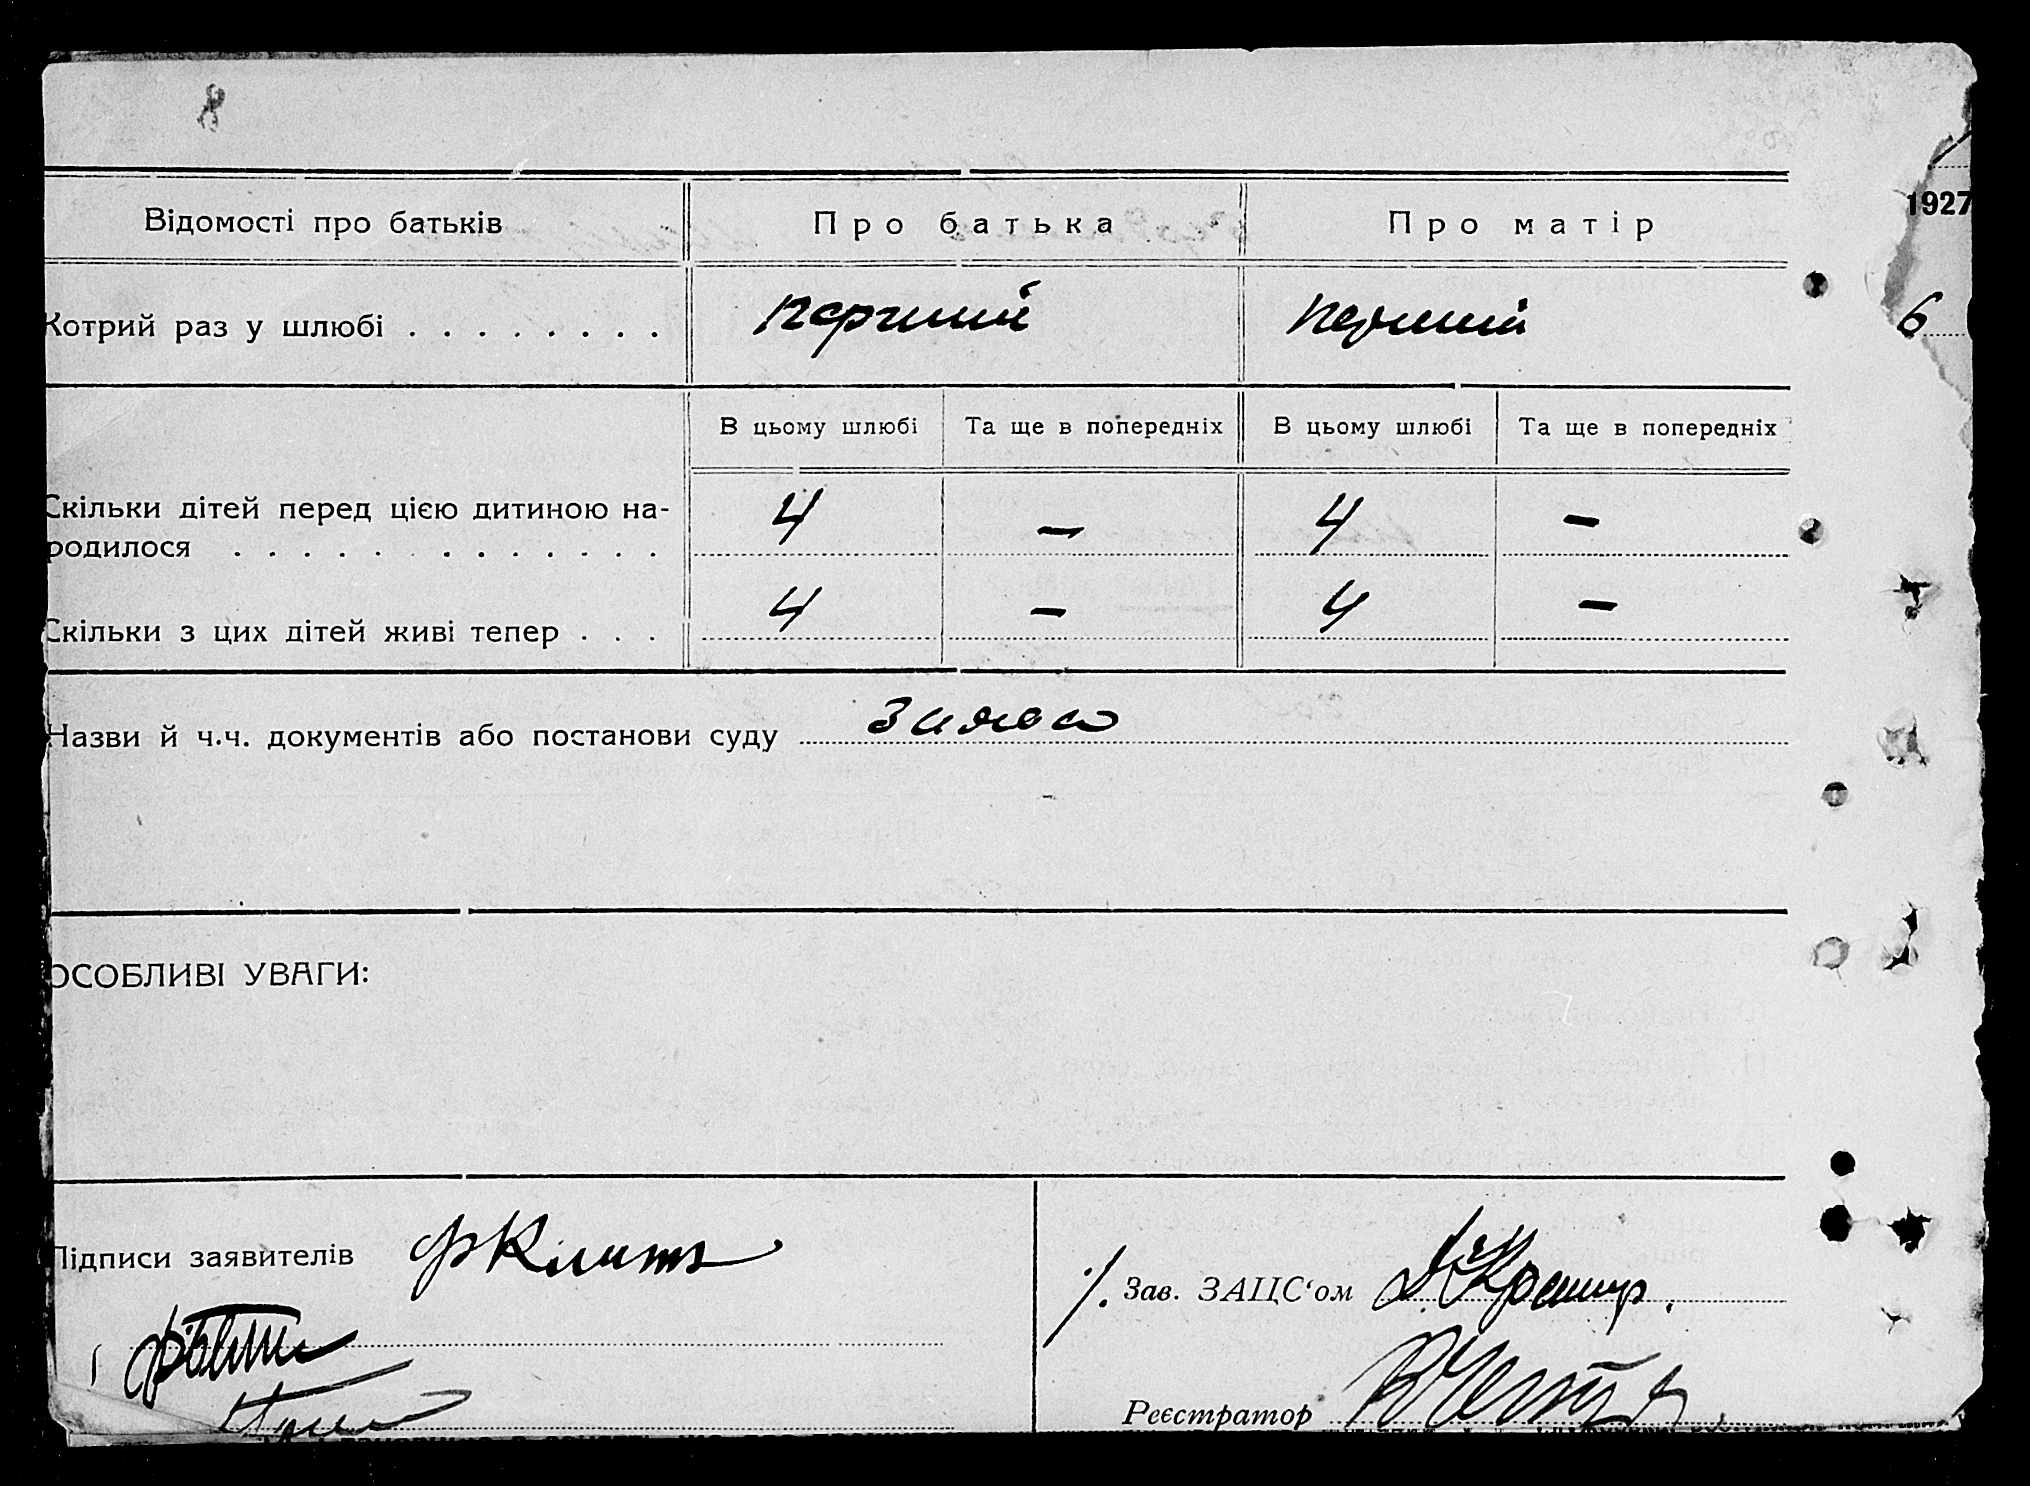 8
1927
Відомості про батьків Про батька Про матір
Котрий раз у шлюбі . . . . . . . . перший перший
6
В цьому шлюбі Та ще в попередніх В цьому шлюбі Та ще в попередніх
Скільки дітей перед цією дитиною на-
родилося . . . . . . . . . . . . . 4 — 4 —
Скільки з цих дітей живі тепер . . . 4 — 4 —
Назви й ч.ч. документів або постанови суду заява
ОСОБЛИВІ УВАГИ:
Підписи заявителів
Зав. ЗАЦС‘ом
Реєстратор